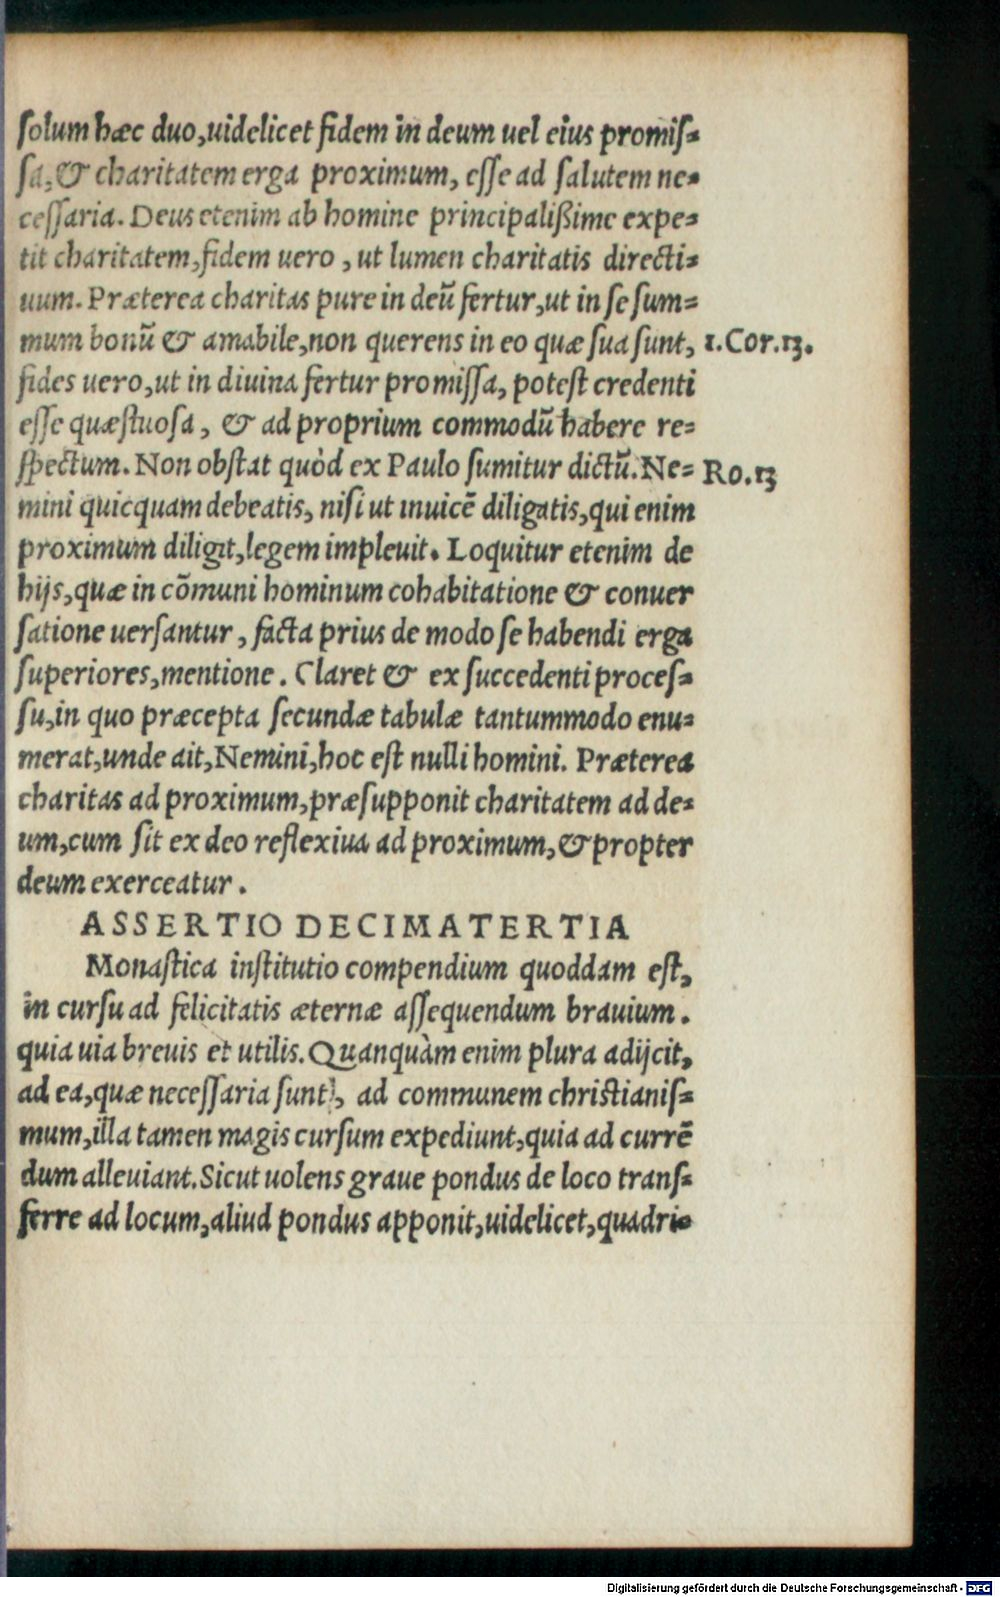 solum hæc duo,uidelicet fidem in deum uel eius promis=
sa,& charitatem erga proximum, esse ad salutem ne=
cessaria. Deus etenim ab homine principalißime expe=
tit charitatem,fidem uero , ut lumen charitatis directi=
uum. Præterea charitas pure in deũ fertur,ut in se sum=
mum bonũ & amabile,non querens in eo quæ sua sunt, 1.Cor.13.
fides uero,ut in diuina fertur promissa, potest credenti
esse quæstuosa , & ad proprium commodũ habere re=
spectum. Non obstat quòd ex Paulo sumitur dictũ. Ne= Ro.13
mini quicquam debeatis, nisi ut inuicẽ diligatis,qui enim
proximum diligit,legem impleuit. Loquitur etenim de
hijs,quæ in cõmuni hominum cohabitatione & conuer
satione uersantur , facta prius de modo se habendi erga
superiores,mentione . Claret & ex succedenti proces=
su,in quo præcepta secundæ tabulæ tantummodo enu=
merat,unde ait,Nemini,hoc est nulli homini. Præterea
charitas ad proximum,præsupponit charitatem ad de=
um,cum sit ex deo reflexiua ad proximum,& propter
deum exerceatur .
ASSERTIO DECIMATERTIA
Monastica institutio compendium quoddam est,
in cursu ad felicitatis æternæ assequendum brauium .
quia uia breuis et utilis. Quanquàm enim plura adijcit,
ad ea,quæ necessaria sunt, ad communem christianis=
mum,illa tamen magis cursum expediunt,quia ad currẽ
dum alleuiant. Sicut uolens graue pondus de loco trans=
ferre ad locum,aliud pondus apponit,uidelicet,quadri=
Digitalisierung gefördert durch die Deutsche Forschungsgemeinschaft - DFG